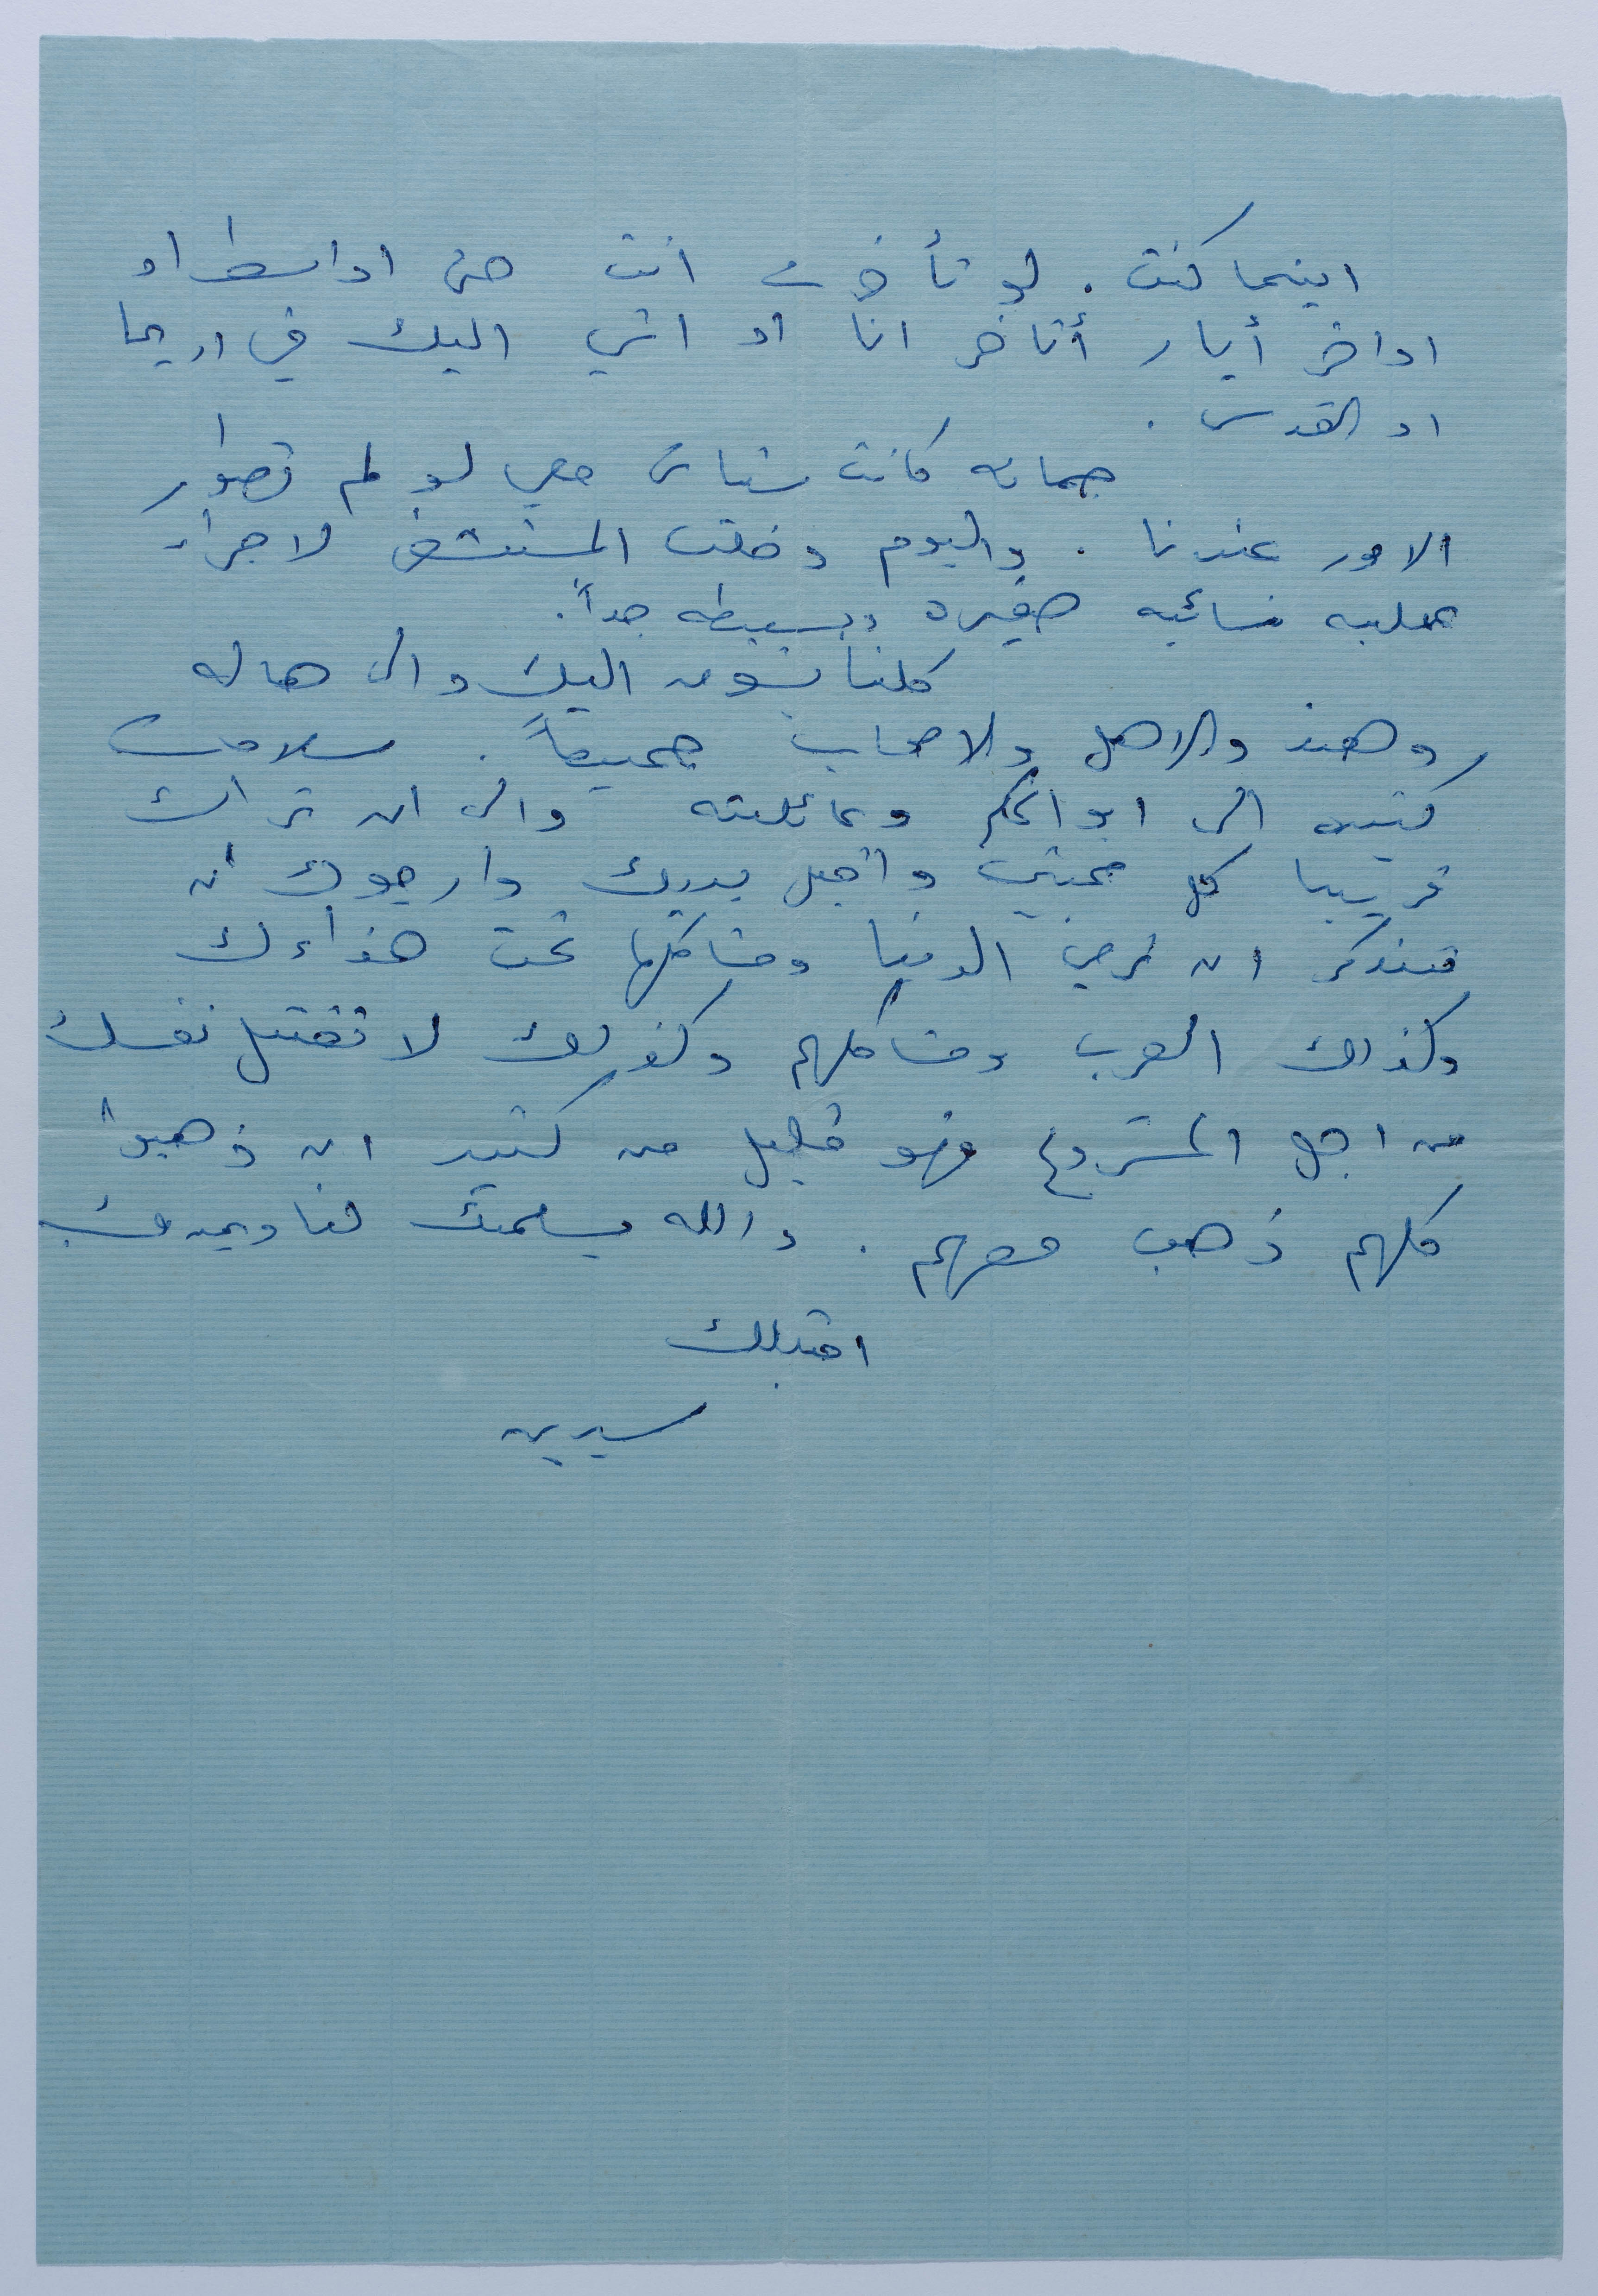 اينما كنت . لو تأخرت انت حتى اواسط او
اواخر أيار أتأخر انا او اتي اليك في اريحا
او القدس .
جمانه كانت ستأتي معي لو لم تطور
الامور عندنا . واليوم دخلت المستشفى لاجراء
عمليه نسائيه صغيره وبسيطه جداً .
كلنا بشوق اليك والى هاله
وهند والاهل والاصحاب جميعاً . سلامات
كثيره الى ابو الحكم وعائلته والى ان نراك
قريبا كل محبتي واقبل يديك وارجوك ان
تتذكر ان ترمي الدنيا ومشاكلها تحت حذاءك
وكذلك العرب ومشاكلهم وكذلك لا تقتل نفسك
من اجل المشروع فهو قليل من كثير ان ذهبوا
كلهم ذهب معهم . والله يسلمك لنا ويديمك
اقبلك
سيرين